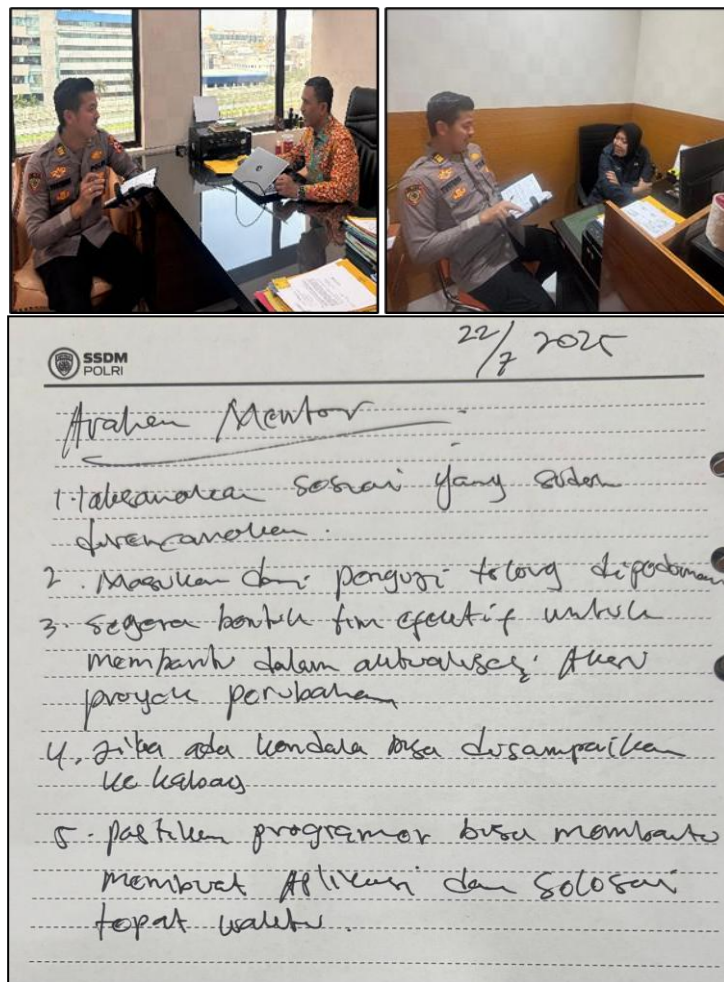 SSDM
POLRI
22/7 2025
Arahan Mentor
1. Laksanakan sesuai yang sudah
direncanakan.
2. Masukan dari penguji tolong dipedomani
3. Segera bentuk tim efektif untuk
membantu dalam aktualisasi Aksi
proyek perubahan
4. Jika ada kendala bisa disampaikan
ke kabag
5. pastikan programer bisa membantu
membuat Aplikasi dan selesai
tepat waktu.